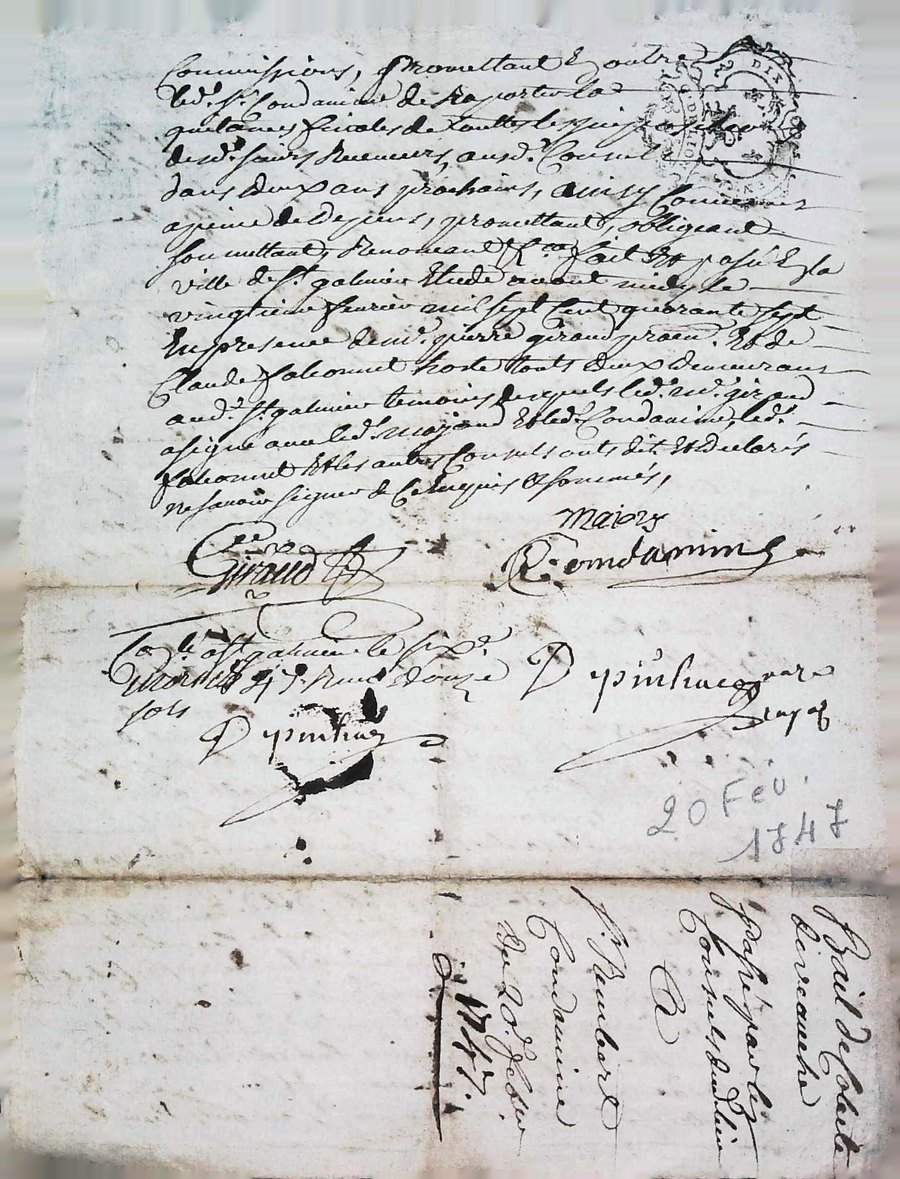 Commissions, promettant En outre
led. Sr. Condamine de Raporter les
quitances finales de touttes les
desd. sieurs Receveurs, ausd. Consuls
dans deux ans prochains, ainsy Convenu
apeine de Depens, promettant, obligeant
soumettant, Renonceant &ca. fait Et passé En la
ville de St. galmier Etude avant midy le
vingtieme fevrier mil sept Cent quarante sept
En presence de me. pierre giraud procur. Et de
Claude faleonnet hoste touts deux demeurant
aud. St. galmier temoins desquels led. me. giraud
a signé avec led. mayoud Et led. Condamine, led.
faleonnet Et les autres Consuls onts dit Et declarés
ne savoir signer de Ce Enquis & sommés,
Giraud
Condamine
St galmier le six
mars 47 Reçu Douze
sols
Depinhac
Depinhac
20 Fév.
1747
Bail de Colecte
de vreauche
passé par les
Consuls dud. lieu
A
Sr. Rembert
Condamine
Du 20. febv.
1747.